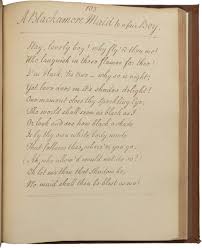 103
A Blackamore Maid to a fair Boy.
Stay, lovely boy! why fly'st thou me
Who languish in these flames for thee?
I'm black 'tis true — why so is night;
Yet love does in its shades delight!
One moment close thy sparkling Eye,
The world will seem as black as I
Or look and see how black a shade
Is by thy own white body made
That follows thee, where'er you go.
(Ah, who allow'd would not do so?)
Oh let me then that Shadow be,
No maid shall then be blest as me!